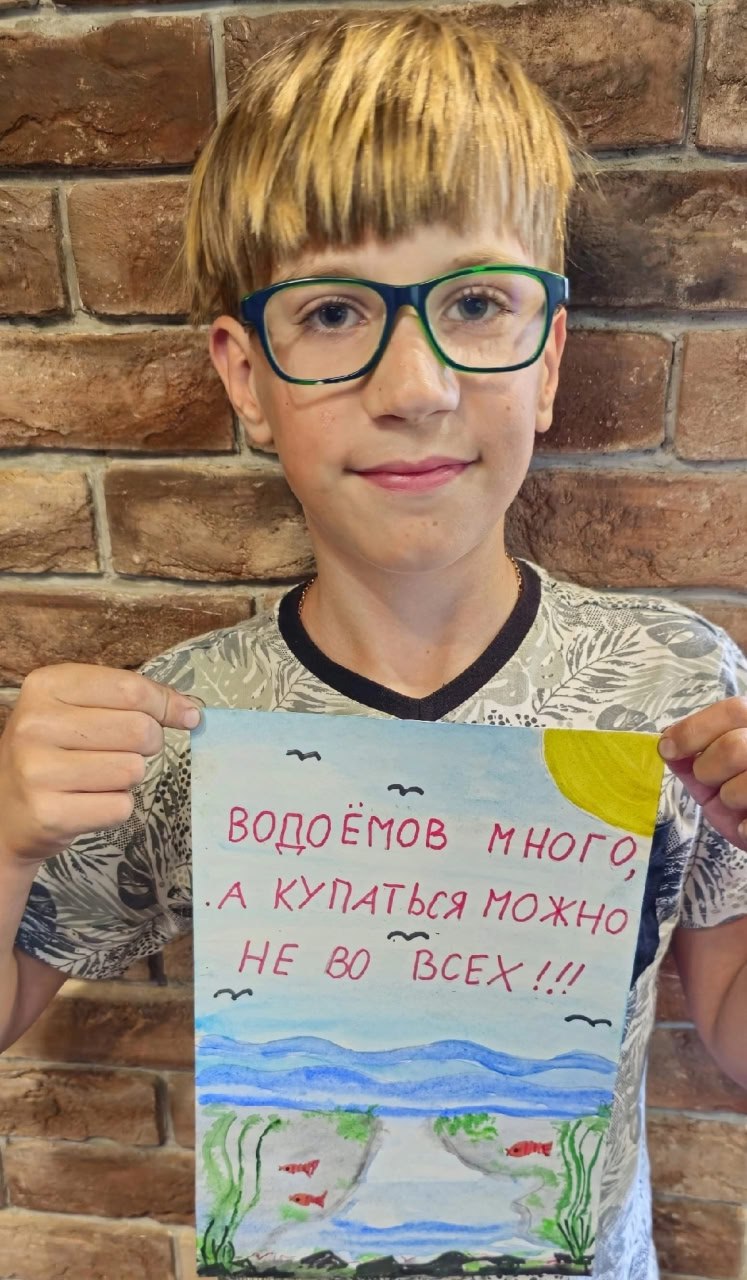 ВОДОЁМОВ МНОГО,
А КУПАТЬСЯ МОЖНО
НЕ ВО ВСЕХ!!!